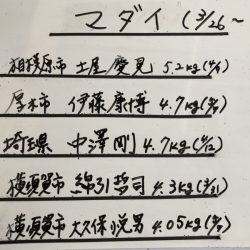 マダイ (3/26~
相模原市 土屋慶見 5.2kg(4/9)
厚木市 伊藤康博 4.7kg(9/1)
埼玉県 中澤剛 4.7kg(4/12)
横須賀市 綿引哲司 4.3kg(3/31)
横須賀市 大久保悦男 4.05kg